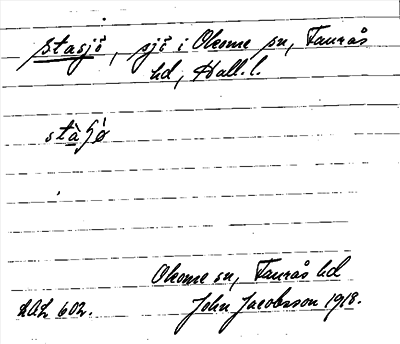 stasjö, sjö i Okome sn, Faurås
hd, Hall. l.
stàʃö́
Okome sn, Faurås hd
DAL 602. John Jacobsson 1918.